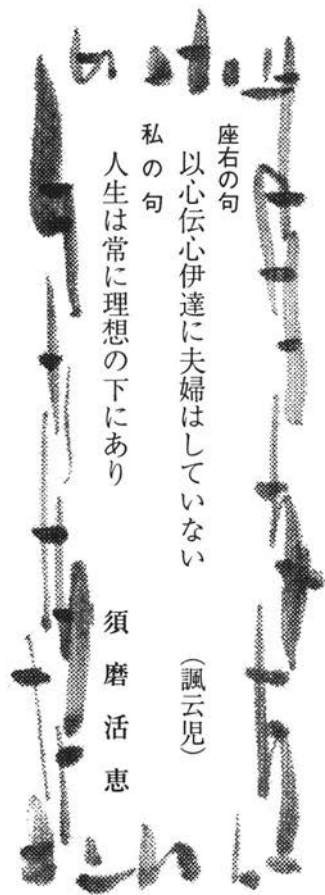 座右の句
以心伝心伊達に夫婦はしていない （諷云児）
私の句
人生は常に理想の下にあり
須磨活恵